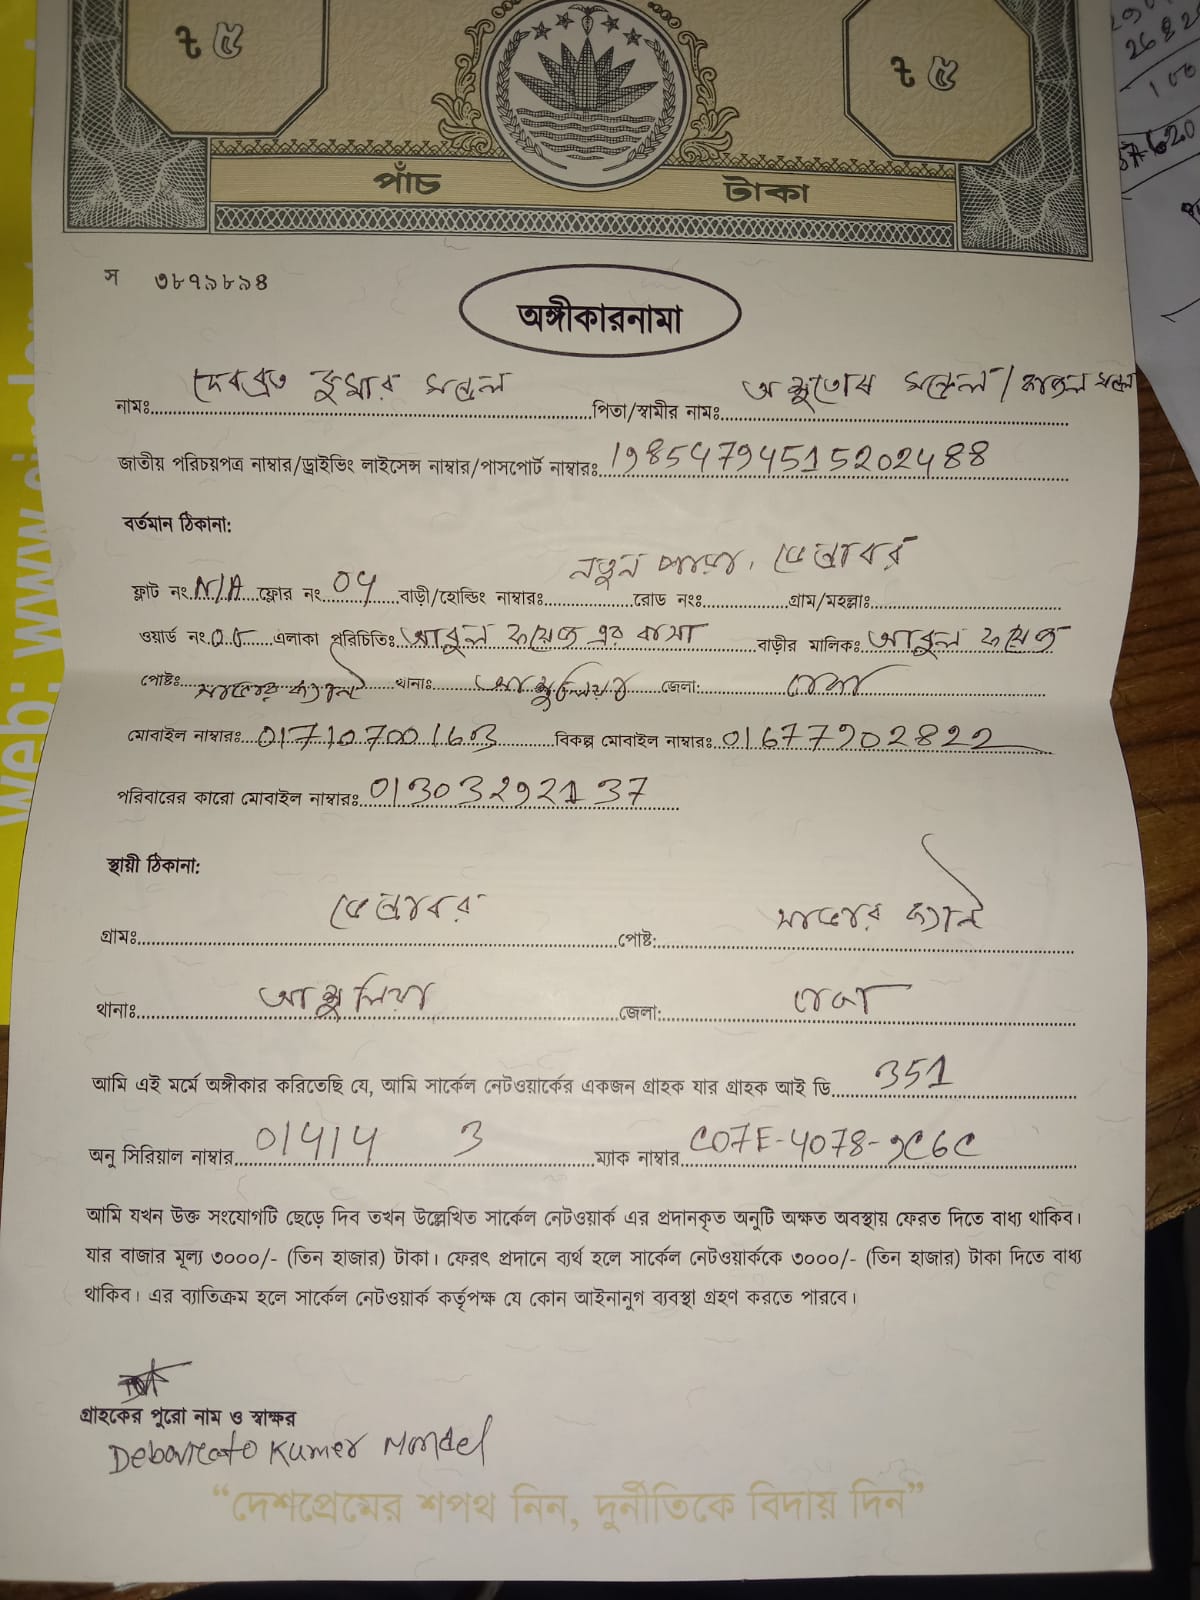 ৳ ৫
৳ ৫
পাঁচ টাকা
স ৩৮৭৯৮৯৪
অঙ্গীকারনামা
নামঃ দেবব্রত কুমার মন্ডল পিতা/স্বামীর নামঃ আশুতোষ মন্ডল / কাজল মন্ডল
জাতীয় পরিচয়পত্র নাম্বার/ড্রাইভিং লাইসেন্স নাম্বার/পাসপোর্ট নাম্বারঃ 19854794515202488
বর্তমান ঠিকানা:
ফ্লাট নং N/A ফ্লোর নং 04 বাড়ী/হোল্ডিং নাম্বারঃ রোড নংঃ গ্রাম/মহল্লাঃ নতুন পাড়া, ডেন্ডাবর
ওয়ার্ড নং 05 এলাকা পরিচিতিঃ আবুল ফয়েজ এর বাসা বাড়ীর মালিকঃ আবুল ফয়েজ
পোষ্টঃ সাভার ক্যান্ট থানাঃ আশুলিয়া জেলা: ঢাকা
মোবাইল নাম্বারঃ 01710700163 বিকল্প মোবাইল নাম্বারঃ 01677202822
পরিবারের কারো মোবাইল নাম্বারঃ 01303292137
স্থায়ী ঠিকানা:
গ্রামঃ ডেন্ডাবর পোষ্ট: সাভার ক্যান্ট
থানাঃ আশুলিয়া জেলা: ঢাকা
আমি এই মর্মে অঙ্গীকার করিতেছি যে, আমি সার্কেল নেটওয়ার্কের একজন গ্রাহক যার গ্রাহক আই ডি 351
অনু সিরিয়াল নাম্বার 01414 3 ম্যাক নাম্বার C07E-4078-9C6C
আমি যখন উক্ত সংযোগটি ছেড়ে দিব তখন উল্লেখিত সার্কেল নেটওয়ার্ক এর প্রদানকৃত অনুটি অক্ষত অবস্থায় ফেরত দিতে বাধ্য থাকিব।
যার বাজার মূল্য ৩০০০/- (তিন হাজার) টাকা। ফেরৎ প্রদানে ব্যর্থ হলে সার্কেল নেটওয়ার্ককে ৩০০০/- (তিন হাজার) টাকা দিতে বাধ্য
থাকিব। এর ব্যাতিক্রম হলে সার্কেল নেটওয়ার্ক কর্তৃপক্ষ যে কোন আইনানুগ ব্যবস্থা গ্রহণ করতে পারবে।
গ্রাহকের পুরো নাম ও স্বাক্ষর
Debavrato Kumer Mondel
“দেশপ্রেমের শপথ নিন, দুর্নীতিকে বিদায় দিন”